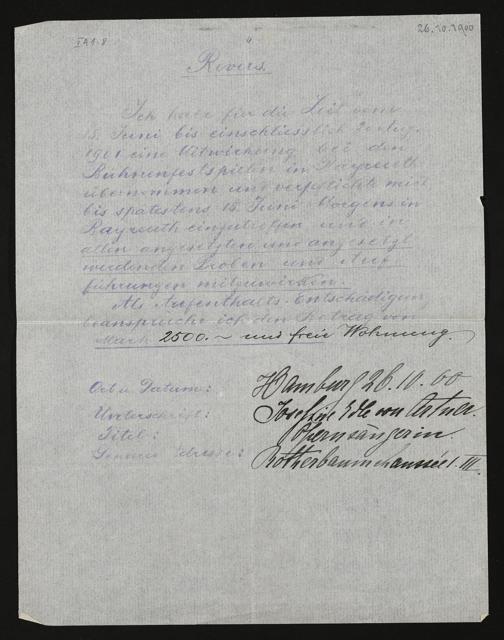 26.10.1900
Revers.
Ich habe für die Zeit vom
15. Juni bis einschliesslich 20 Aug.
1901 eine Mitwirkung bei den
Bühnenfestspielen in Bayreuth
übernommen und verpflichte mich
bis spätestens 15. Juni Morgens in
Bayreuth einzutreffen und in
allen angesetzten und angesetzt
werdenden Proben und Auf
führungen mitzuwirken.
Als Aufenthalts-Entschädigung
beanspruche ich den Betrag von
Mark 2500.- und freie Wohnung.
Ort u. Datum: Hamburg 26.10.00
Unterschrift: Josefine Edle von Artner.
Titel: Opernsängerin.
Genaue Adresse: Rotherbaumchaussée III.